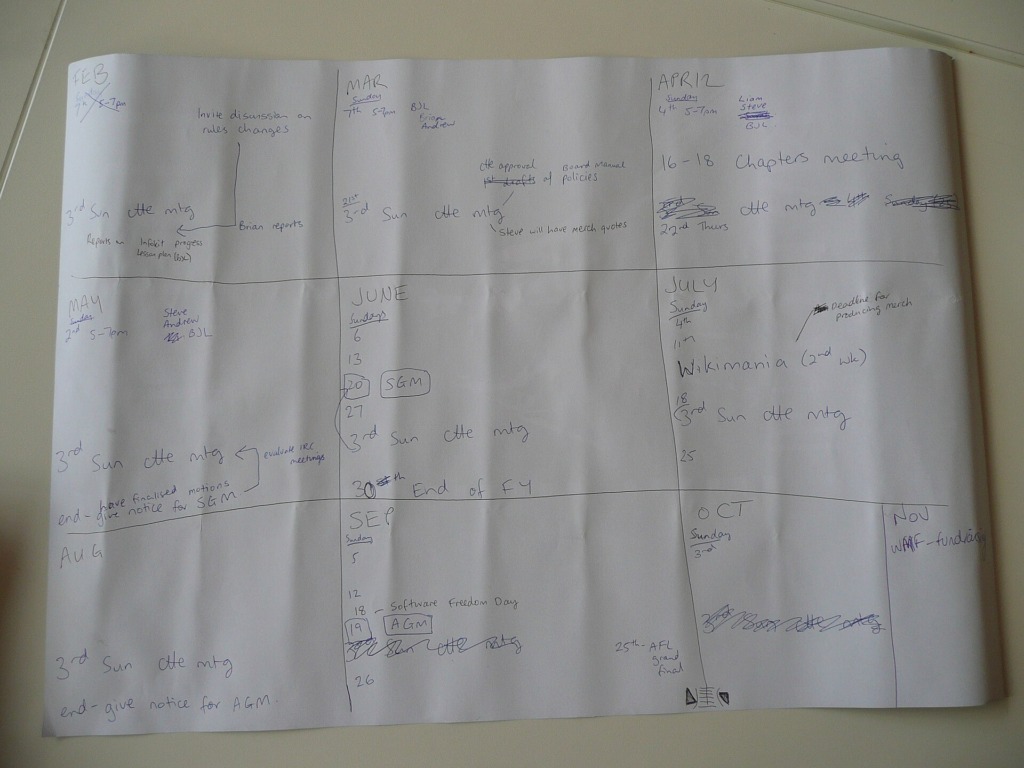 FEB
5-7pm
Invite discussion on
rules changes
3rd Sun ctte mtg
Brian reports
Reports on Infokit progress
Lesson plan (BJL)
MAR
Sunday
7th 5-7pm
BJL
Brian
Andrew
ctte approval
1st drafts of Board Manual
policies
21st
3rd Sun ctte mtg
Steve will have merch quotes
APRIL
Sunday
4th 5-7pm
Liam
Steve
BJL
16-18 Chapters meeting
ctte mtg
22nd Thurs
MAY
Sunday
2nd 5-7pm
Steve
Andrew
BJL
3rd Sun ctte mtg
evaluate IRC
meetings
have finalised motions
end - give notice for SGM
JUNE
Sundays
6
13
20 SGM
27
3rd Sun ctte mtg
30th End of FY
JULY
Sunday
4th
11th
Deadline for
producing merch
Wikimania (2nd wk)
18
3rd Sun ctte mtg
25
AUG
3rd Sun ctte mtg
end - give notice for AGM.
SEP
Sunday
5
12
18 - Software Freedom Day
19 AGM
3rd Sun ctte mtg
26
25th - AFL
grand
final
OCT
Sunday
3rd
3rd Sun ctte mtg
NOV
WMF - fundraising